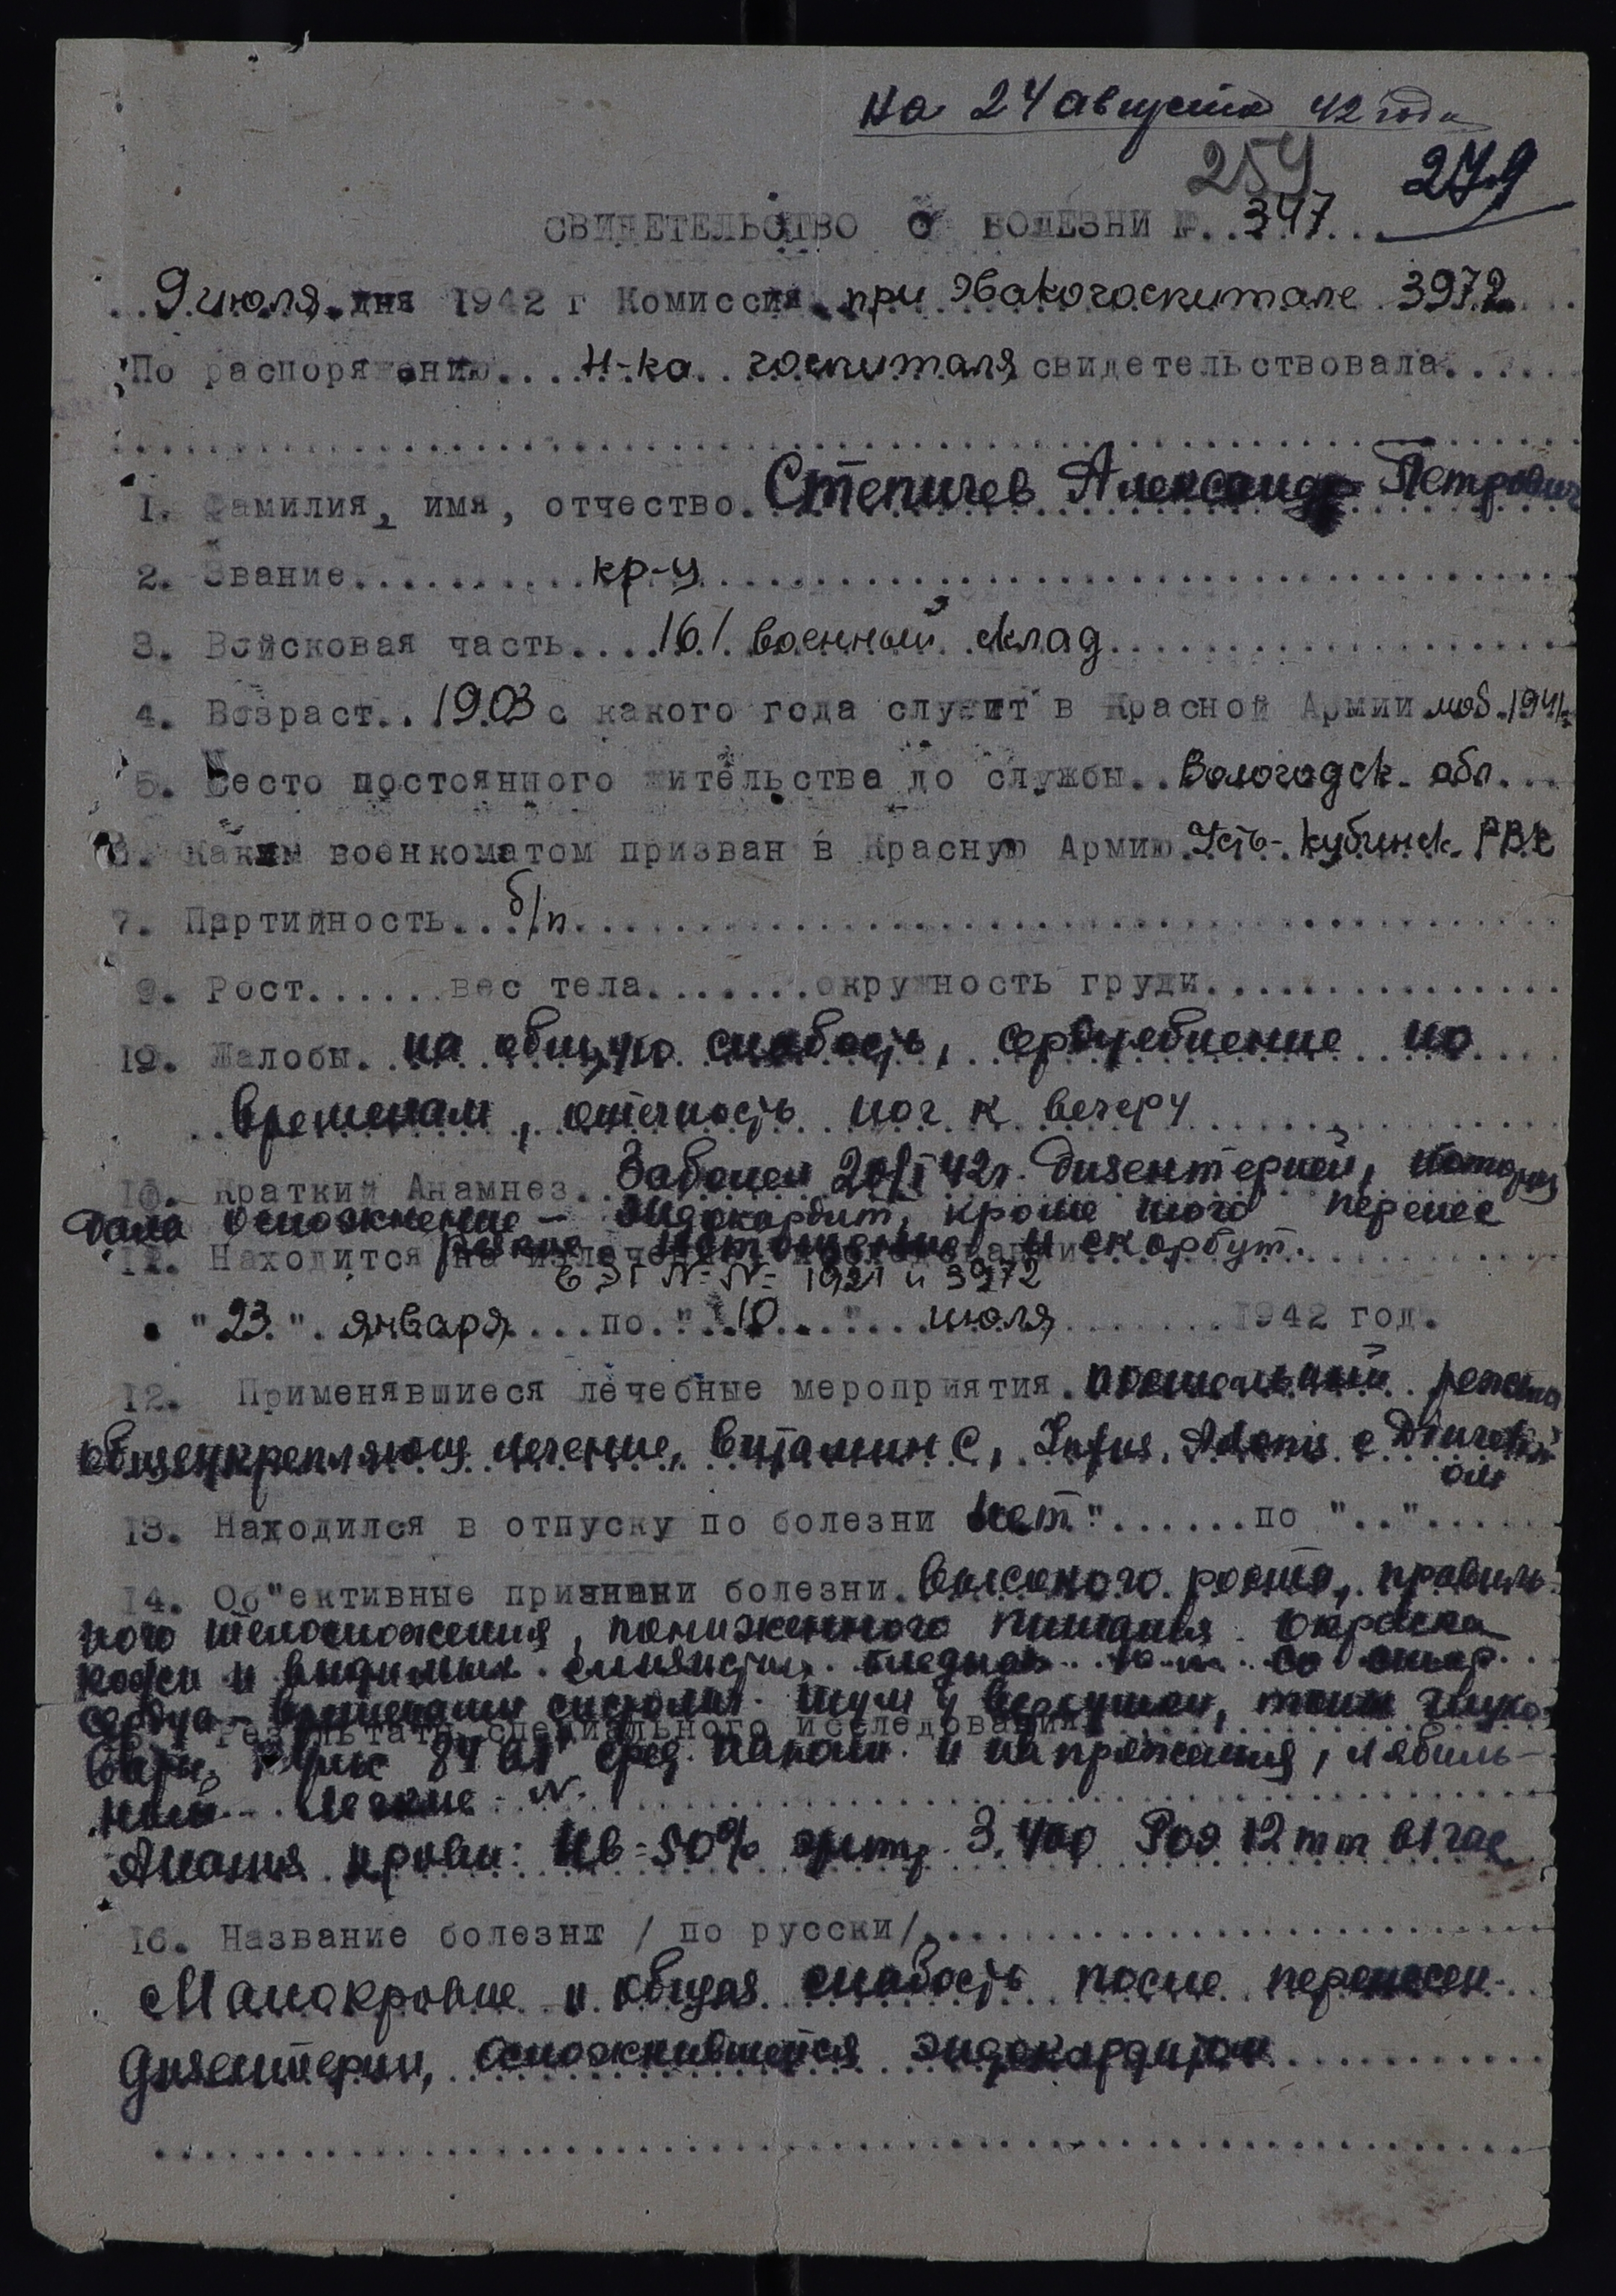 на 24 августа 42 года
254 279
СВИДЕТЕЛЬСТВО О БОЛЕЗНИ №..347...
..9 июля.дня 1942 г Комиссия при Эвакогоспитале 3972...
По распоряжению....Н-ка госпиталя свидетельствовала.....
1. Фамилия, имя, отчество. Степичев Александр Петрович
2. Звание..........кр-ц
3. Войсковая часть....161 военный склад
4. Возраст..1903 с какого года служит в Красной Армии моб.1941г
5. Место постоянного жительства до службы..Вологодск. обл...
6. Каким военкоматом призван в Красную Армию.Усть-Кубинск. РВК
7. Партийность...б/п
9. Рост......вес тела.......окружность груди
10. Жалобы. на общую слабость, сердцебиение по
временам, отечность ног к вечеру
10. Краткий Анамнез.. Заболел 20/I 42г. дизентерией, которая
дала осложнение – эндокардит, кроме того перенес
резкое истощение и скорбут.
11. Находится на излечении
в ЭГ №№ 1921 и 3972
"23". января....по."..10...."...июля........1942 год.
12. Применявшиеся лечебные мероприятия. постельный режим
общеукрепляющ лечение, витамин С, Infus. Adonis с Diuretin
ом
13. Находился в отпуску по болезни нет"......по ".."......
14. Об"ективные признаки болезни. Высокого роста, правиль-
ного телосложения, пониженного питания. Окраска
кожи и видимых слизистых бледная. со стор.
сердца – систолич. шум у верхушки, тоны глухо-
Результаты специального исследования
ваты. Пульс 84 в 1' сред. наполн. и напряжения, лябиль-
ный – Легкие – N.
Анализ крови: Нв-50% эритр. 3.400 Роэ 12 mm в 1 час
16. Название болезни / по русски/
Малокровие и общая слабость после перенесен.
дизентерии, осложнившейся эндокардитом